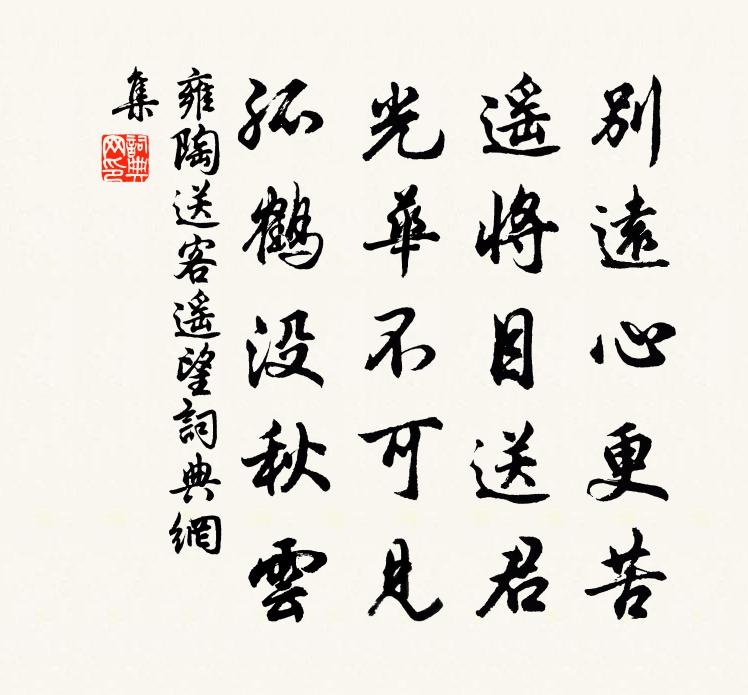 別遠心更苦
遥將目送君
光華不可見
孤鶴没秋雲
雍陶送客遥望詞典網
集
詞典
网印